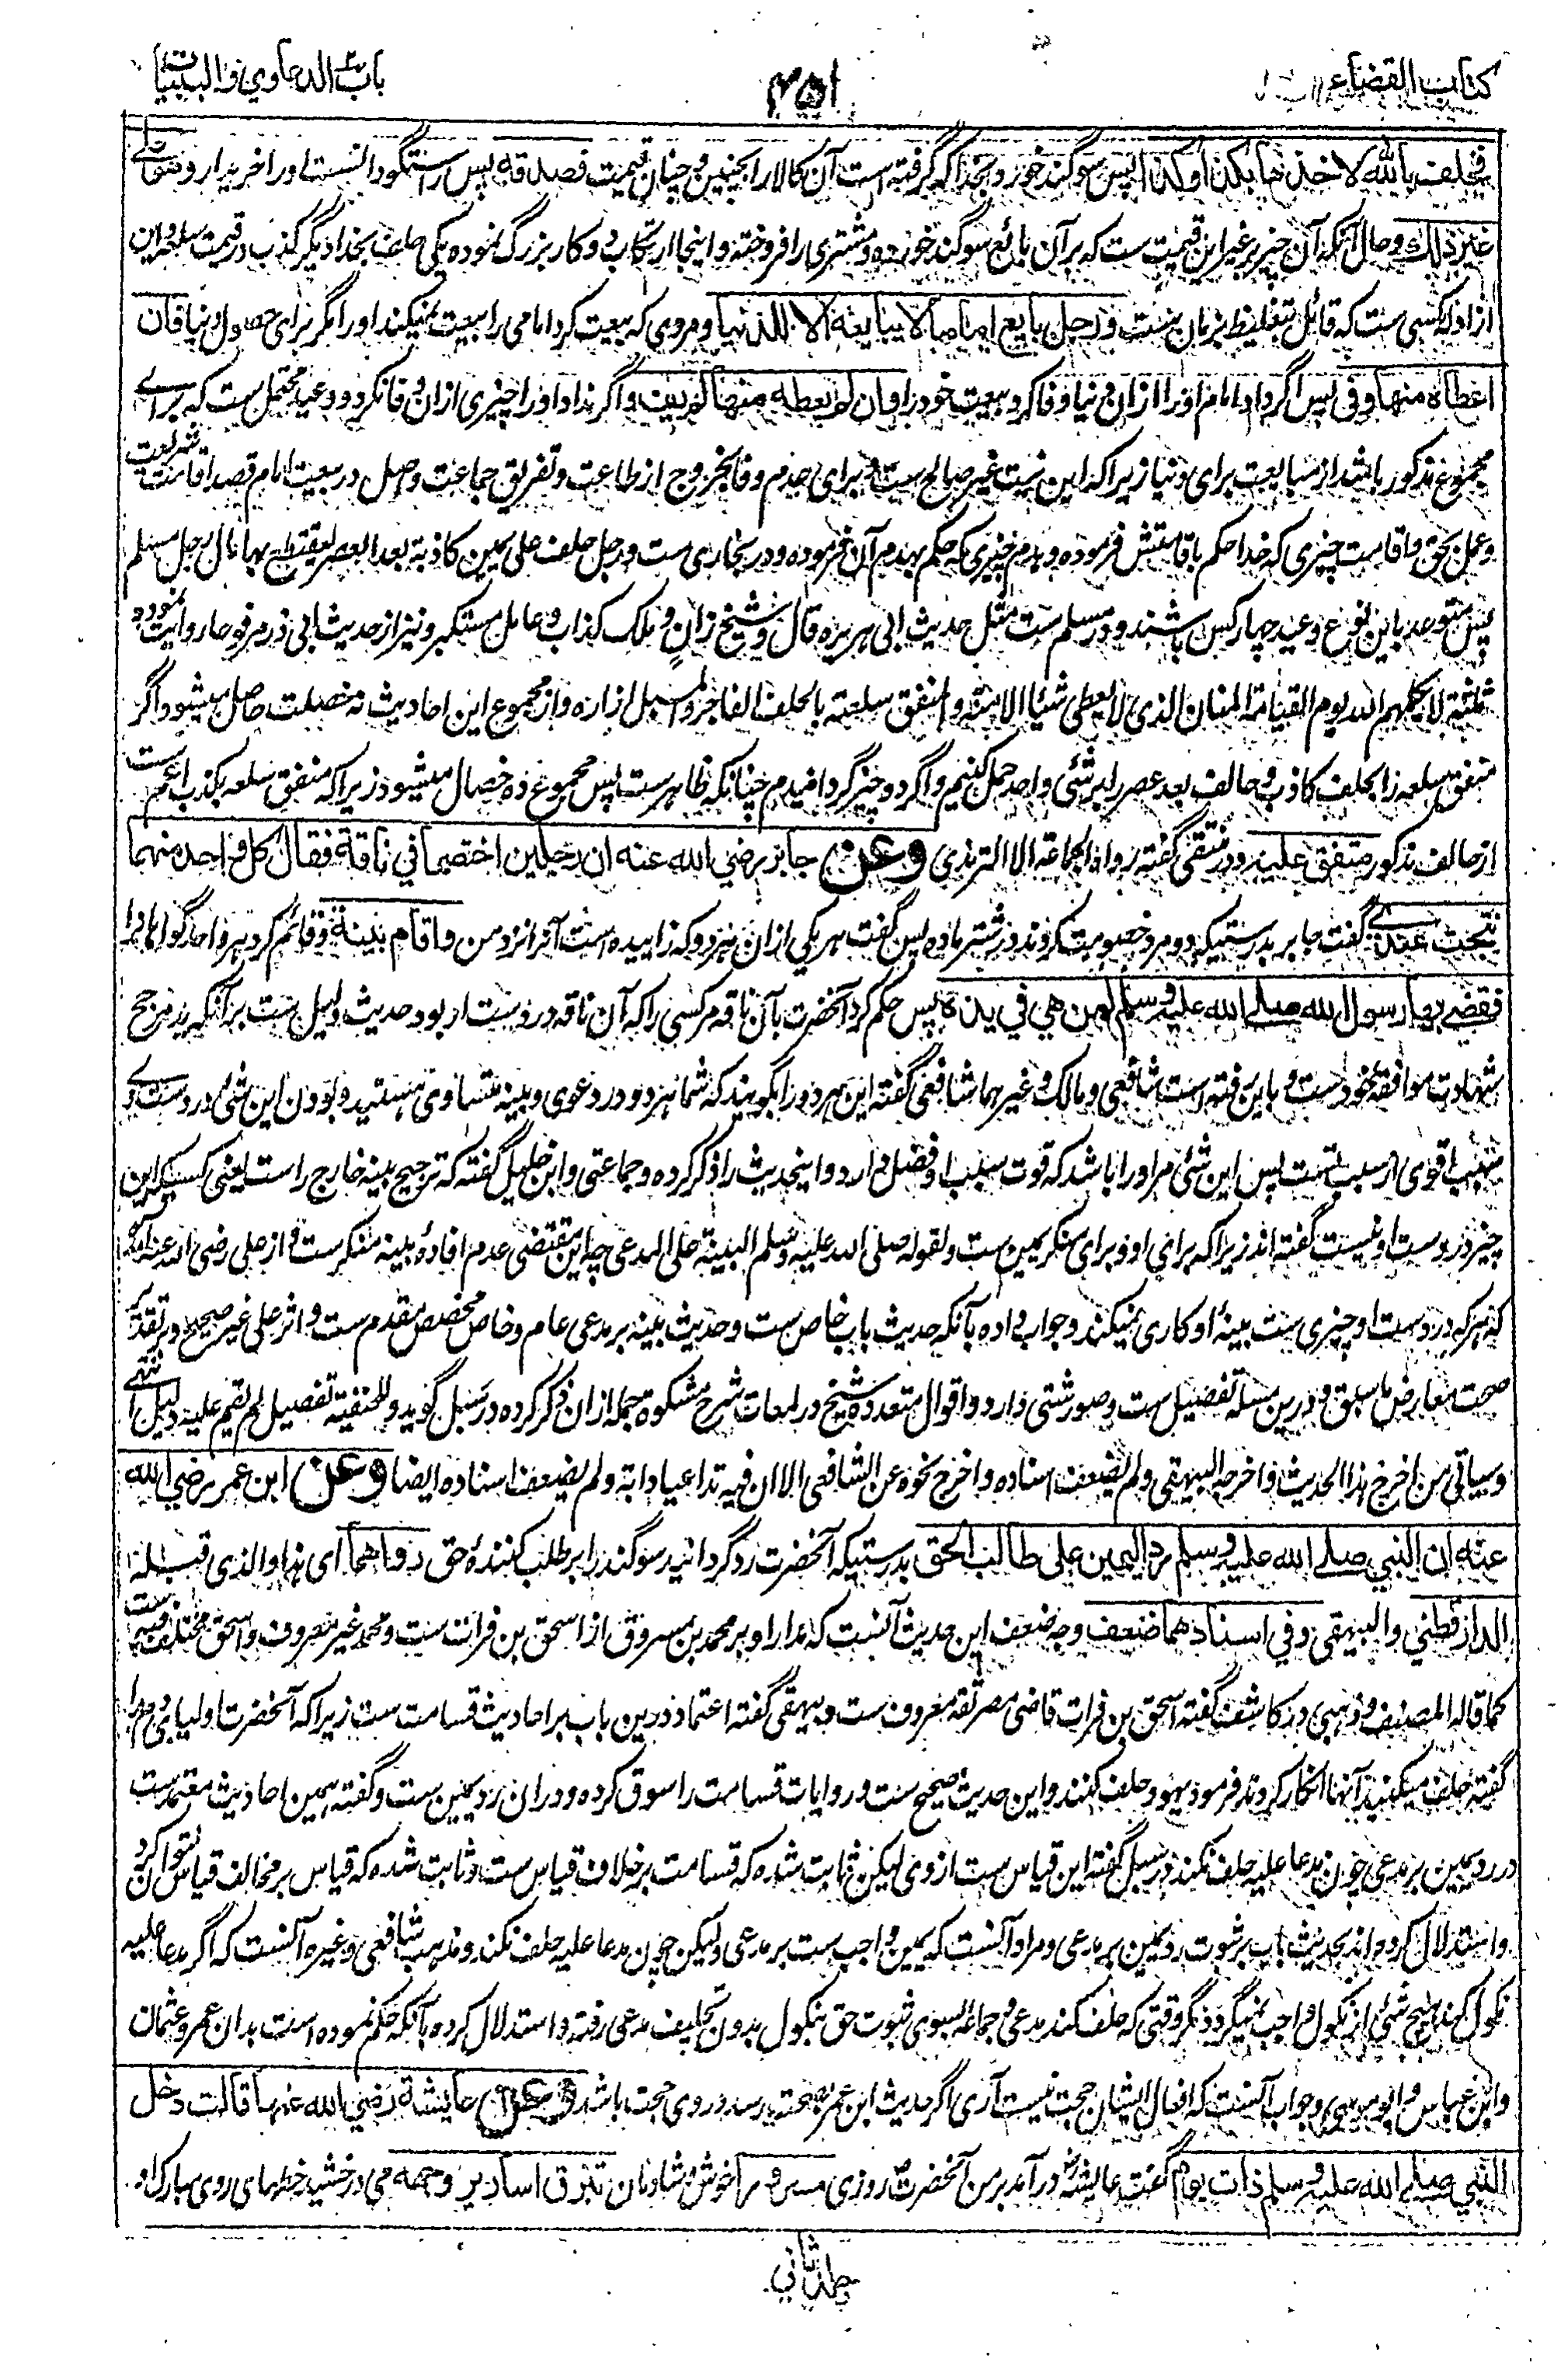 کتاب القضاء
۴۵۱
باب الدعاوي والبینات
فحلف بالله لاخذها بکذا وکذا پس سوگند خورد بخدا که گرفته است آن کالا را بچنین و چنان قیمت فصدقه پس راستگو دانست او را خریدار وهو علے
غیر ذلك وحال آنکه آن چیز بر غیر این قیمت ست که بر آن بائع سوگند خورده و مشتری را فروخته و اینجا ارتکاب دو کار بزرگ نموده یکی حلف بخدا دیگر کذب در قیمت سلعه و این
از ادله کسی ست که قائل بتغلیظ بزمان ست ورجل بایع اماما لا یبایعه الا للدنیا و مردی که بیعت کرد امامی را بیعت نمیکند او را مگر برای حصول دنیا فان
اعطاه منها وفی پس اگر داد امام او را ازان دنیا وفا کرد بیعت خود را وان لم یعطه منها لم یف و اگر نداد او را چیزی ازان وفا نکرد و وعید محتمل ست که براے
مجموع مذکور باشد از مبایعت برای دنیا زیرا که این نیت غیر صالح ست و برای عدم وفا بخروج از طاعت و تفریق جماعت و اصل در بیعت امام قصد اقامت شریعت
و عمل بحق و اقامت چیزی که خدا حکم باقامتش فرموده و هدم چیزی که حکم بهدم آن فرموده و در بخاری ست ورجل حلف علی یمین کاذبة بعد العصر لیقتطع بها مال رجل مسلم
پس متوعد باین نوع وعید چهار کس باشند و در مسلم ست مثل حدیث ابی هریره قال وشیخ زانٍ وملک کذاب وعامل مستکبر و نیز از حدیث ابی ذر مرفوعا روایت نموده
ثلثة لا یکلمهم الله یوم القیامة المنان الذی لا یعطی شیئا الا منه والمنفق سلعته بالحلف الفاجر والمسبل ازاره و از مجموع این احادیث نه خصلت حاصل میشود و اگر
منفق سلعه را بحلف کاذب و حالف بعد عصر را بر شئی واحد حمل کنیم و اگر دو چیز گردانیدم چنانکه ظاهر ست پس مجموع ده خصال میشود زیرا که منفق سلعه بکذب اعم ست
از حالف مذکور متفق علیه و در منتقی گفته رواه الجماعة الا الترمذی وعن جابر رضي الله عنه ان رجلین اختصما في ناقة فقال کل واحد منهما
نتجت عندے گفت جابر بدرستیکه دو مرد خصومت کردند در شتر ماده پس گفت هر یکی ازان هر دو که زاییده است آنرا نزد من واقام بینة وقائم کرد هر واحد گواهان را
فقضے بها رسول الله صلے الله علیه وسلم لمن هي في یده پس حکم کرد آنحضرت بآن ناقه مر کسی را که آن ناقه در دست او بود حدیث دلیل ست بر آنکه ید مرجح
شهادت موافقه خود ست و باین رفته است شافعی و مالک و غیرهما شافعی گفته این هر دو را بگویند که شما هر دو در دعوی و بینه متساوی هستید و بودن این شئی در دست وے
سبب اقوی از سبب تست پس این شئی مر او را باشد که قوت سبب او فضل دارد و اینحدیث را ذکر کرده و جماعتی و ابن حنبل گفته که ترجیح بینه خارج راست یعنی کسیکه این
چیز در دست او نیست گفته اند زیرا که برای او و برای منکر یمین ست ولقوله صلی الله علیه وسلم البینة علی المدعی چه این مقتضی عدم افاده بینه منکر ست و از علی رضی الله عنه آمده
که هر که در دست او چیزی ست بینه او کاری نمیکند و جواب داده بآنکه حدیث باب خاص ست و حدیث بینه بر مدعی عام و خاص مخصص مقدم ست و اثر علی غیر صحیح و بر تقدیر
صحت معارض ما سبق و درین مسئله تفصیل ست و صور شتی دارد و اقوال متعدده شیخ در لمعات شرح مشکوة جمله ازان ذکر کرده در سبل گوید وللحنفیة تفصیل لم یقم علیه دلیل انتهی
وسیاتی من اخرج هذا الحدیث واخرجه البیهقی ولم یضعف اسناده واخرج نحوه عن الشافعی الا ان فیه تداعیا دابة ولم یضعف اسناده ایضا وعن ابن عمر رضي الله
عنه ان النبي صلے الله علیه وسلم رد الیمین علی طالب الحق بدرستیکه آنحضرت رد گردانید سوگند را بر طلب کننده حق رواهما ای هذا والذی قبله
الدارقطني والبیهقي وفي اسنادهما ضعف وجه ضعف این حدیث آنست که مدار او بر محمد بن مسروق از اسحق بن فرات ست و محمد غیر معروف و اسحق مختلف فیه ست
کما قاله المصنف و ذهبی در کاشف گفته اسحق بن فرات قاضی مصر ثقه معروف ست و بیهقی گفته اعتماد درین باب بر احادیث قسامت ست زیرا که آنحضرت اولیای دم را
گفته حلف میکنید آنها انکار کردند فرمود یهود حلف کنند و این حدیث صحیح ست و روایات قسامت را سوق کرده و دران رد یمین ست و گفته همین احادیث معتمد ست
در رد یمین بر مدعی چون مدعا علیه حلف نکند در سبل گفته این قیاس ست از وی لیکن ثابت شده که قسامت بر خلاف قیاس ست و ثابت شده که قیاس بر مخالف قیاس نتوان کرد
و استدلال کرده اند بحدیث باب بر ثبوت رد یمین بر مدعی و مراد آنست که یمین واجب ست بر مدعی ولیکن چون مدعا علیه حلف نکند و مذهب شافعی و غیره آنست که اگر مدعا علیه
نکول کند هیچ شئی از نکول واجب نمیگردد مگر وقتی که حلف کند مدعی و جماعه بسوی ثبوت حق بنکول بدون تحلیف مدعی رفته و استدلال کرده بآنکه حکم نموده است بدان عمر و عثمان
و ابن عباس و ابو موسی و جواب آنست که افعال ایشان حجت نیست آری اگر حدیث ابن عمر بصحت رسد در وی حجت باشد وعن عایشة رضي الله عنها قالت دخل
النبي صلے الله علیه وسلم ذات یوم گفت عائشه در آمد بر من آنحضرت روزی مسرورا خوش و شادمان تبرق اساریر وجهه می درخشید خطهای روی مبارک او
جلد ثانی